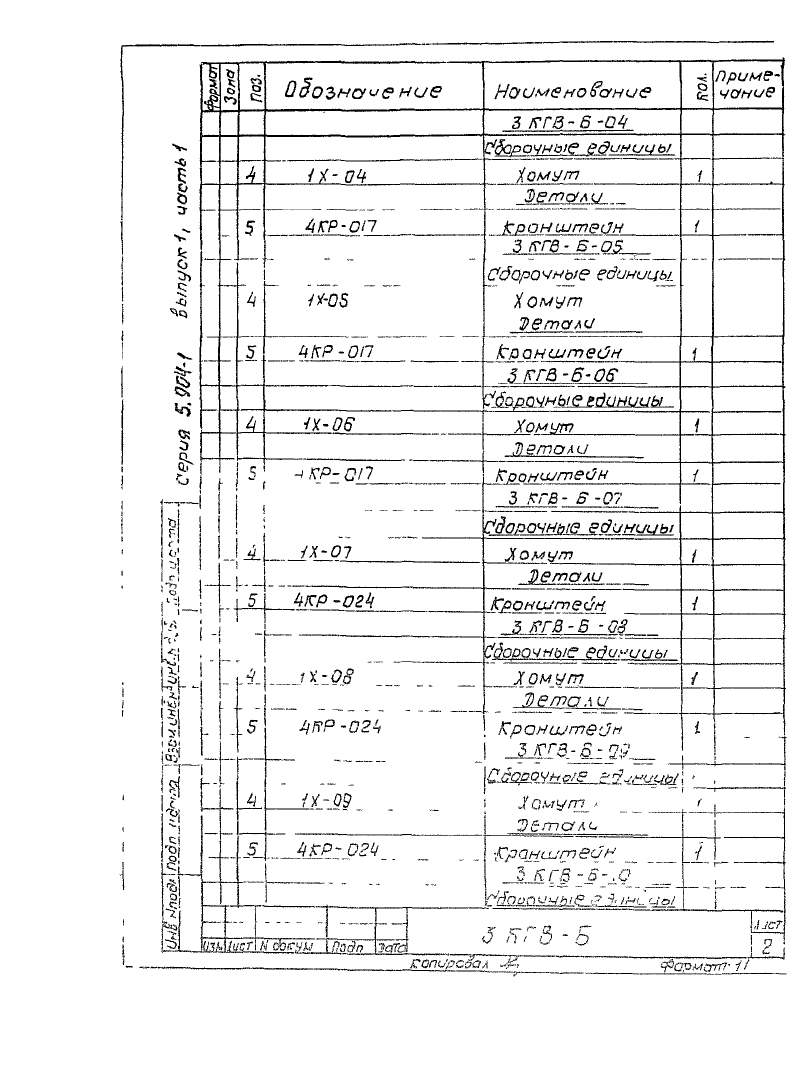 Формат Зона Поз. Обозначение Наименование Кол. Приме-
чание
3 КГВ-Б-04
Сборочные единицы
4 1Х-04 Хомут 1
Детали
5 4КР-017 Кронштейн 1
3 КГВ-Б-05
Сборочные единицы
4 1Х-05 Хомут
Детали
5 4КР-017 Кронштейн 1
3 КГВ-Б-06
Сборочные единицы
4 1Х-06 Хомут 1
Детали
5 4КР-017 Кронштейн 1
3 КГВ-Б-07
Сборочные единицы
4 1Х-07 Хомут 1
Детали
5 4КР-024 Кронштейн 1
3 КГВ-Б-08
Сборочные единицы
4 1Х-08 Хомут 1
Детали
5 4КР-024 Кронштейн 1
3 КГВ-Б-09
Сборочные единицы
4 1Х-09 Хомут 1
Детали
5 4КР-024 Кронштейн 1
3 КГВ-Б-10
Сборочные единицы
Изм Лист N докум Подп Дата
3 КГВ-Б
Лист
2
Копировал
Формат 11
Серия 5.904-1 Выпуск 1, часть 1
Инв N подл Подп и дата Взам инв N Подп и дата